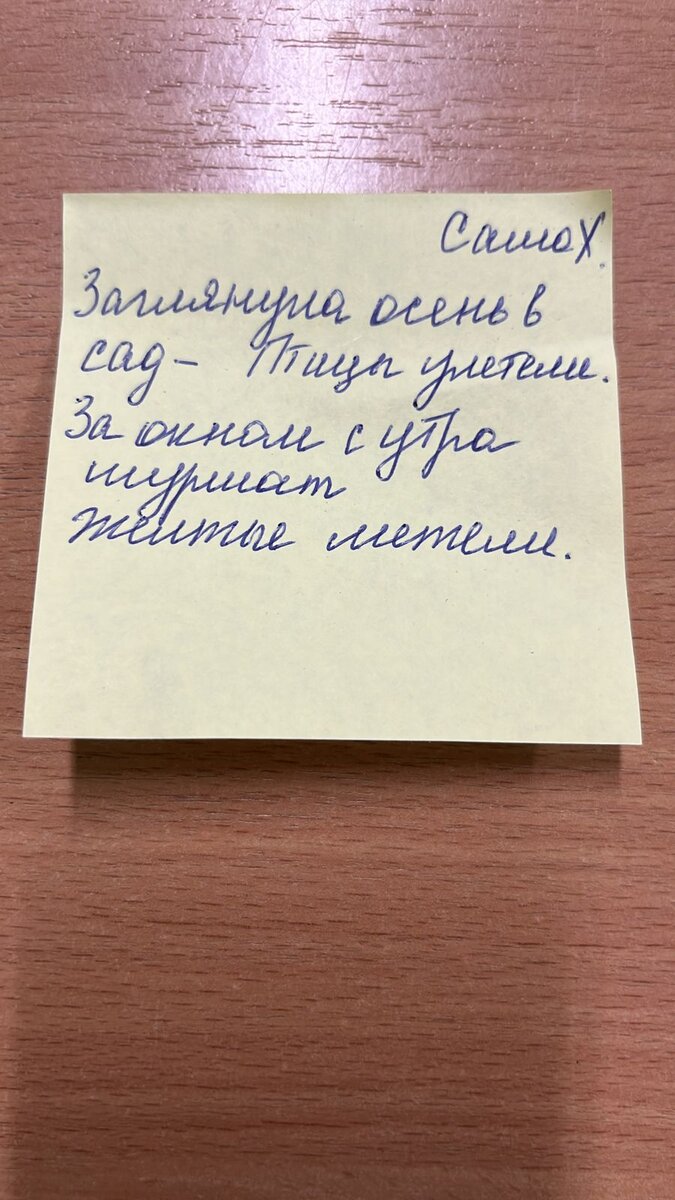 Саша Х.
Заглянула осень в
сад - Птицы улетели.
За окном с утра
шуршат
Жёлтые метели.